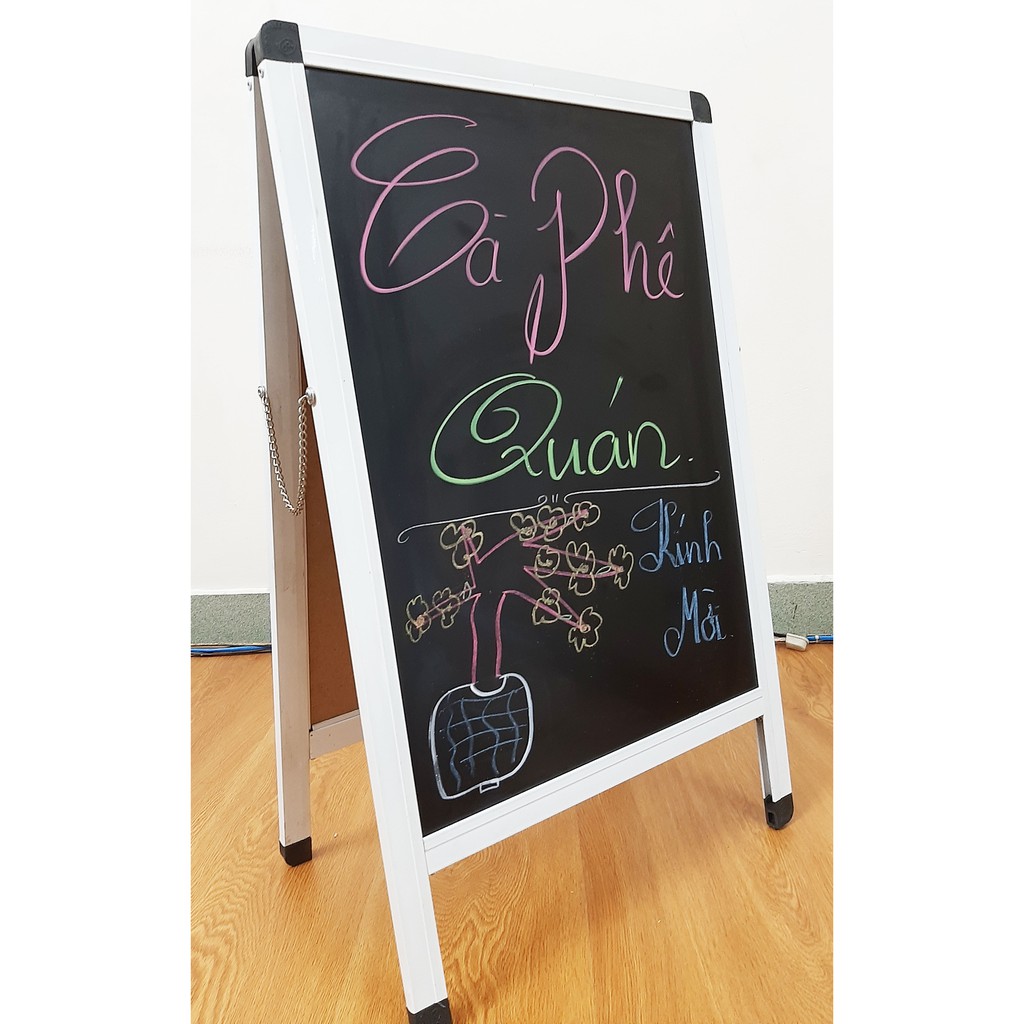 Cà Phê
Quán.
Kính
Mời